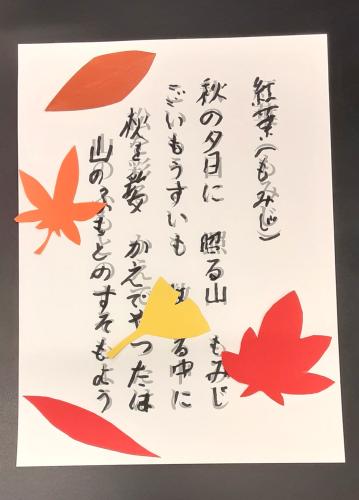 紅葉(もみじ)
秋の夕日に 照る山 もみじ
こいもうすいも る中に
松を彩る かえでやつたは
山のふもとのすそもよう